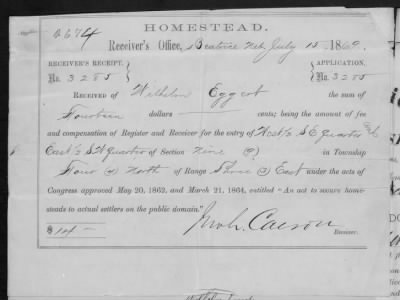 HOMESTEAD.
2674
Receiver's Office, Beatrice Neb July 15 1869.
RECEIVER'S RECEIPT. APPLICATION.
No. 3285 No. 3285
RECEIVED OF Wilhelm Eggert the sum of
Fourteen dollars cents; being the amount of fee
and compensation of Register and Receiver for the entry of West ½ S E Quarter and
East ½ S W Quarter of Section Nine (9) in Township
Four (4) North of Range Three (3) East under the acts of
Congress approved May 20, 1862, and March 21, 1864, entitled "An act to secure home-
steads to actual settlers on the public domain."
Receiver.
$ 14 –